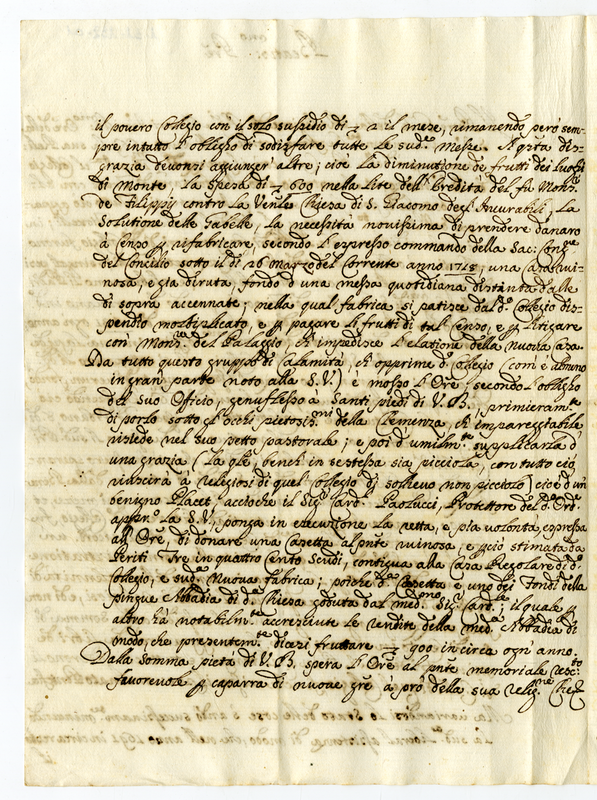 il povero Collegio con il solo sussidio di ∇ 2 il mese, rimanendo però sem-
pre intatto l'obligo di sodisfare tutte le sud.e Messe. A q̃sta dis-
grazia devonsi aggiunger altre; cioè la diminutione de frutti dei luoghi
di Monte, la spesa di ∇ 600 nella lite dell'Eredità del fù Mons.r
de Filippis contro la Ven.le Chiesa di S. Giacomo degl'Incurabili, la
solutione delle Gabelle, la necessità novissima di prendere danaro
à Censo p rifabricare, secondo l'espresso commando della Sac: Con.gne
del Concilio sotto il dì 26 Marzo del corrente anno 1718, una Casa rui-
nosa, e già diruta, fondo d'una messa quotidiana distinta dalle
di sopra accennate; nella qual fabrica si patisce dal d.o Collegio dis-
pendio moltiplicato, e p pagare li frutti di tal Censo, e p litigare
con Mons.r del Palaggio, ch'impedisce l'elatione della nuova Casa.
Da tutto questo gruppo di Calamità, ch'opprime d.o Collegio (com'è almeno
in gran parte noto alla S.V.) è mosso l'Ore, secondo l'obligo
del suo Officio, genuflesso à Santi piedi di V.B., primieram.te
di porlo sotto gl'occhi pietosis.mi della Clemenza, ch'impareggiabile
risiede nel suo petto pastorale; e poi d'umilm.te supplicarla d'
una grazia (la q̃le, bench'in se stessa sia picciola, con tutto ciò
riuscirà à religiosi di quel Collegio di sollievo non picciolo) cioè d'un
benigno Placet, acciochè il Sig.r Card.l Paolucci, Protettore del d.o Ord.e
app.o la S.V., ponga in executione la retta, e pia volontà, espressa
all'Ore, di donare una Casetta al pñte ruinosa, e pciò stimata da
Periti Tre in quattro Cento Scudi, contigua alla Casa Regolare di d.o
Collegio, e sud.a Nuova fabrica; poichè d.a Casetta è uno dei fondi della
pingue Abbadia di d.a Chiesa goduta dal med.mo Sig.r Card.le; il quale p
altro hà notabilm.te accresciute le rendite della med.a Abbadia di
modo, che presentem.te dicesi fruttare ∇ 900 in circa ogni anno.
Dalla Somma pietà di V.B. spera l'Ore al pñte memoriale resc.to
favorevole p caparra di nuove gr̃e à prò della sua relig.ne Che